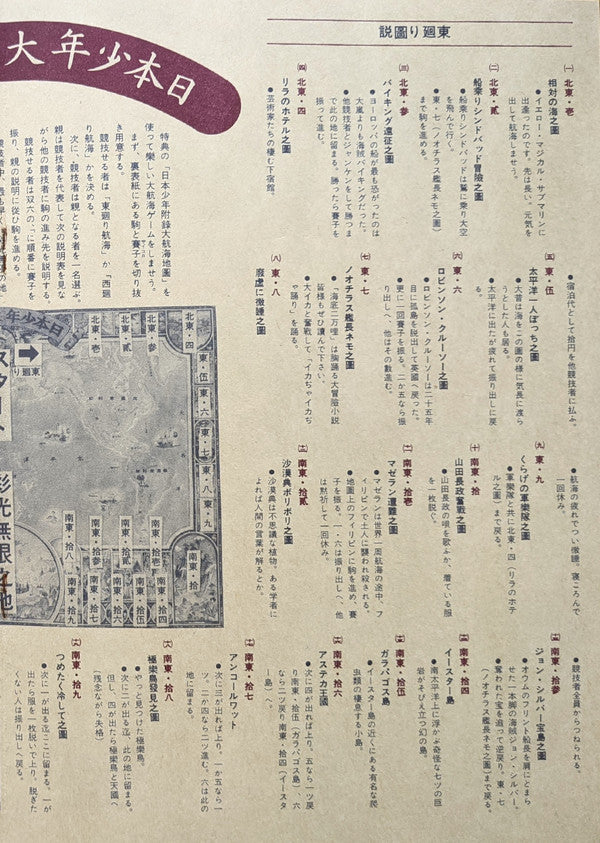 東廻り圖説
(一) 北東・壱
相対の海之圖
●イエロー・マジカル・サブマリンに
出逢ったのです。先は長い。元気を
出して航海しませう。
(二) 北東・貳
船乗りシンドバッド冒険之圖
●船乗りシンドバッドは鷲に乗り大空
を飛んで行く。
●東・七(ノオチラス艦長ネモ之圖)
まで駒を進める。
(三) 北東・参
バイキング遠征之圖
●ヨーロッパの船が最も恐がったのは
大嵐よりも海賊バイキングだった。
●他競技者とジャンケンをして勝つま
で此の地に留まる。勝つたら賽子を
振つて進む。
(四) 北東・四
リラのホテル之圖
●芸術家たちの棲む下宿館。
●宿泊代として拾円を他競技者に払ふ。
(五) 東・伍
太平洋一人ぼっち之圖
●大昔は海を この圖の様に気長に渡ら
うとした人も居る。
●太平洋に出たが疲れて振り出しに戻
る。
(六) 東・六
ロビンソン・クルーソー之圖
●ロビンソン・クルーソーは二十五年
目に孤島を脱出して英國へ戻った。
●更に一回賽子を振る。二か五なら振
り出しへ 他はその數進む。
(七) 東・七
ノオチラス艦長ネモ之圖
●「海底二万哩」は胸踊る大冒険小説
皆様もぜひ讀んで下さい。
●大イカと奮戦して「イカぢゃイカぢ
ゃ踊り」を踊る。
(八) 東・八
廢虚に微睡之圖
●航海の疲れでつい微睡。寝ころんで
一回休み。
(九) 東・九
くらげの軍樂隊之圖
●軍樂隊と共に北東・四(リラのホテ
ル之圖)まで戻る。
(十) 南東・拾
山田長政奮戰之圖
●山田長政の唄を歌ふか、着ている服
を一枚脱ぐ。
(十一) 南東・拾壱
マゼラン遭難之圖
●マゼランは世界一周航海の途中、フ
イリピンで土人に襲われ殺される。
●地圖上のフィリピンに駒を進め、賽
子を振る。一・六は振り出しへ、他
は黙祈して一回休み。
(十二) 南東・拾貳
沙漠典ポリポリ之圖
●沙漠典は不思議な植物。ある学者に
よれば人間の言葉が解るとか。
●競技者全員からつねられる。
(十三) 南東・拾参
ジョン・シルバー宝島之圖
●オウムのフリント船長を肩にとまら
せた一本脚の海賊ジョン・シルバー。
●奪われた宝を追って逆戻り。東・七
(ノオチラス艦長ネモ之圖)まで戻る。
(十四) 南東・拾四
イースター島
●南太平洋上に浮かぶ奇怪な七ツの巨
岩がそびえ立つ幻の島。
(十五) 南東・拾伍
ガラパゴス島
●イースター島の近くにある有名な爬
虫類の棲息する小島。
(十六) 南東・拾六
アステカ王國
●次に四が出れば上り。五なら一ツ戻
り南東・拾伍(ガラパゴス島)、六
なら二ツ戻り南東・拾四(イースタ
ー島)へ。
(十七) 南東・拾七
アンコールワット
●次に三が出れば上り。一か五なら一
ツ、二か四なら二ツ進む。六は此の
地に留まる。
(十八) 南東・拾八
極樂鳥發見之圖
●やっと見つけた極樂鳥。
●次に二が出る迄、此の地に留まる。
但し、四が出たら極樂鳥と天國へ
(残念ながら失格)。
(十九) 南東・拾九
つめたく冷して之圖
●次に一が出る迄ここに留まる。一が
出たら服を一枚脱いで上り。脱ぎた
くない人は振り出しへ戻る。
日本少年大
特典の「日本少年附録大航海地圖」を
使って樂しい大航海ゲームをしませう。
まず、裏表紙にある駒と賽子を切り抜
き用意する。
競技せる者は「東廻り航海」か「西廻
り航海」かを決める。
次に、競技者は親となる者を一名選ぶ。
親は競技者を代表して次の説明表を見な
がら他の競技者に駒の進み先を説明する。
競技せる者は双六の一に順番に賽子を
振り、親の説明に従ひ駒を進める。
日本少年
東廻り
スタート
北東・壱
北東・貳
北東・参
北東・四
東・伍
東・六
東・七
東・八
東・九
南東・拾
南東・拾壱
南東・拾貳
南東・拾参
南東・拾四
南東・拾伍
南東・拾六
南東・拾七
南東・拾八
南東・拾九